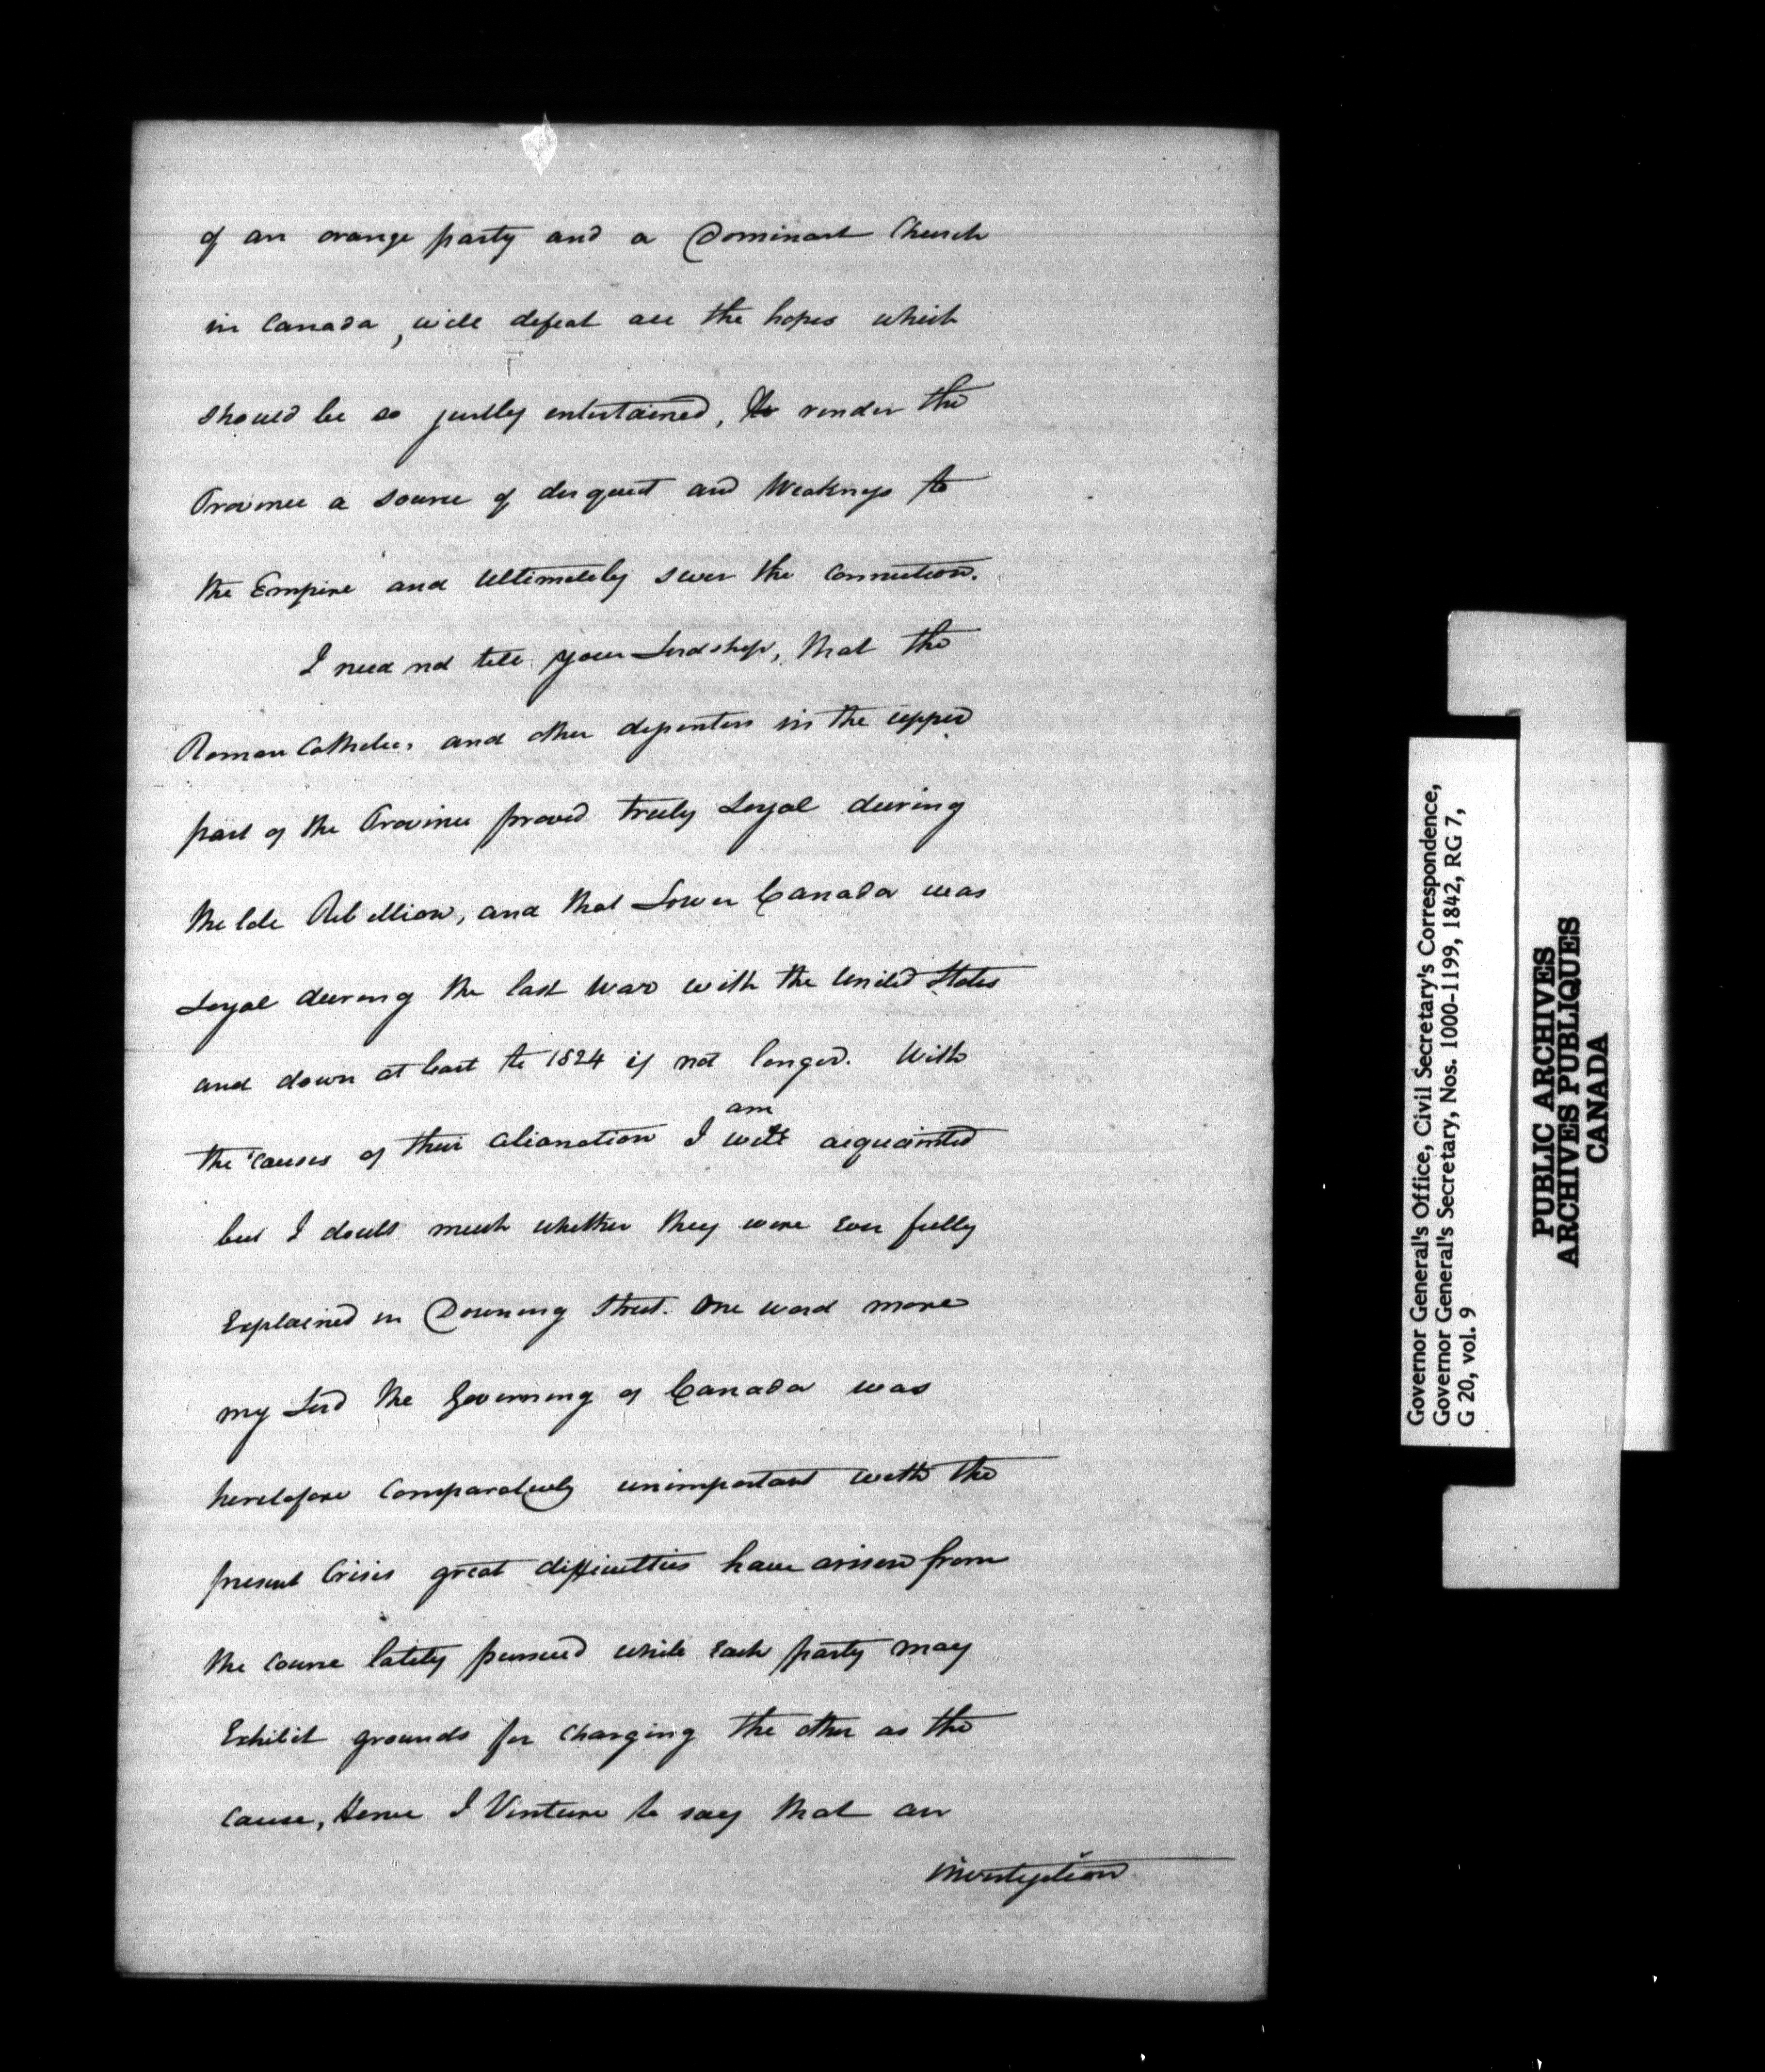 of an orange party and a Dominant Church
in Canada, will defeat all the hopes which
should be so justly entertained, to render the
Province a source of disquiet and Weakness to
the Empire and Ultimately sever the Connection.
I need not tell your Lordship, that the
Roman Catholics and other dissenters in the upper
part of the Province proved truly Loyal during
the late Rebellion, and that Lower Canada was
Loyal during the last war with the United States
and down at least to 1824 if not longer. With
am
the causes of their alienation I well acquainted
but I doubt much whether they were Ever fully
Explained in Downing Street. One word more
my Lord the Governing of Canada was
heretofore Comparatively unimportant with the
present Crisis great difficulties have arisen from
the course lately pursued while Each party may
Exhibit grounds for charging the other as the
cause, Hence I Venture to say that an
investigation
Governor General's Office, Civil Secretary's Correspondence,
Governor General's Secretary, Nos. 1000-1199, 1842, RG 7,
G 20, vol. 9
PUBLIC ARCHIVES
ARCHIVES PUBLIQUES
CANADA